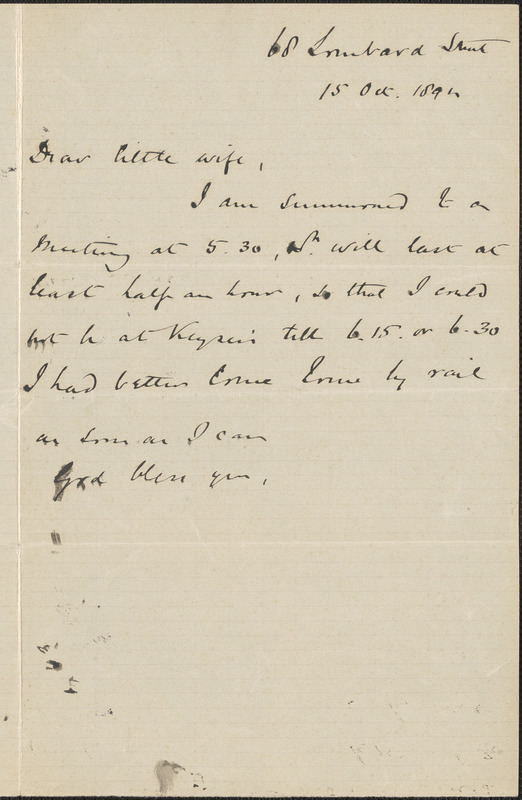 68 Lombard Street
15 Oct. 1894
Dear little wife,
I am summoned to a
meeting at 5.30, wh. will last at
least half an hour, so that I could
not be at Keyser's till 6.15. or 6.30
I had better come home by rail
as soon as I can
God bless you,